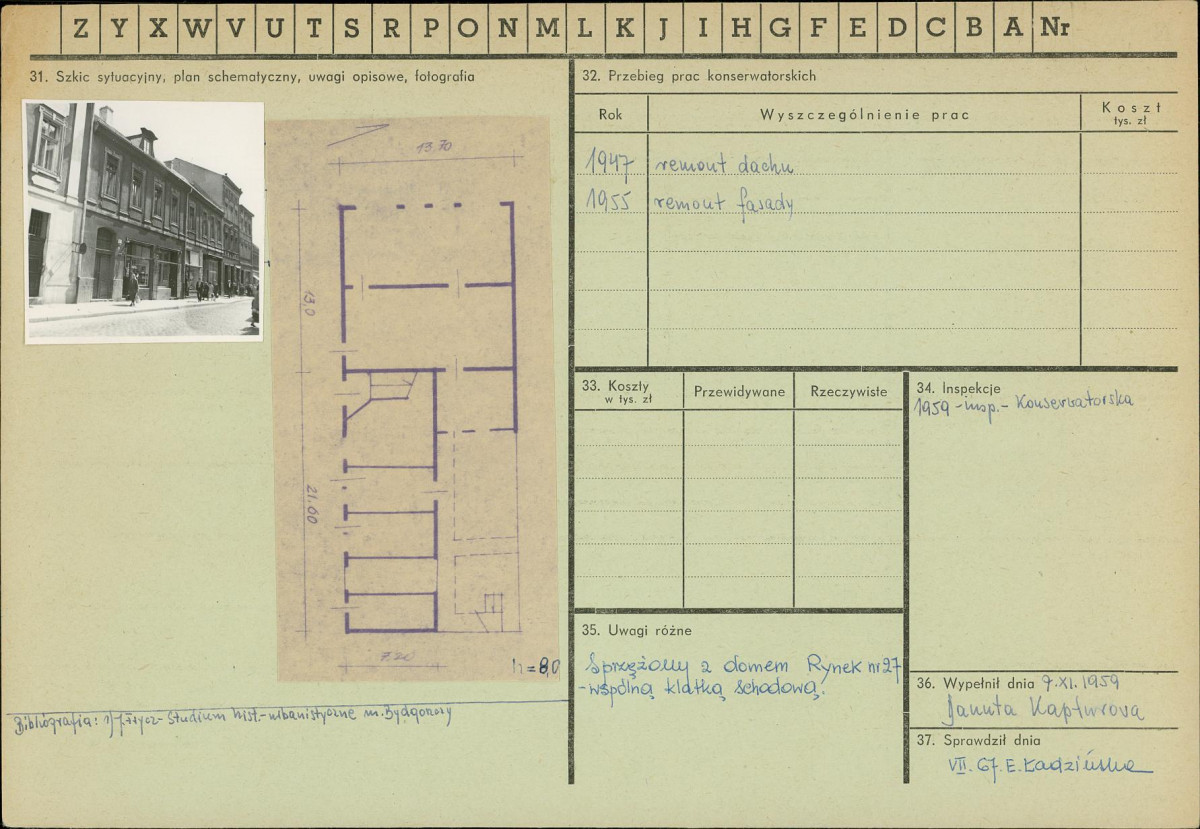 Z Y X W V U T S R P O N M L K J I H G F E D C B A Nr
31. Szkic sytuacyjny, plan schematyczny, uwagi opisowe, fotografia
13.70
13,0
21.60
7.20
h=8,0
Bibliografia: 1/ J. Frycz - Studium hist.-urbanistyczne m. Bydgoszczy
32. Przebieg prac konserwatorskich
Rok Wyszczególnienie prac Koszt
tys. zł
1947 remont dachu
1955 remont fasady
33. Koszty
w tys. zł
Przewidywane Rzeczywiste
34. Inspekcje
1959 - insp. - Konserwatorska
35. Uwagi różne
Sprzężony z domem Rynek nr 27
- wspólną klatką schodową.
36. Wypełnił dnia 9.XI.1959
Danuta Kapturova
37. Sprawdził dnia
VII. 67. E. Ładzińska